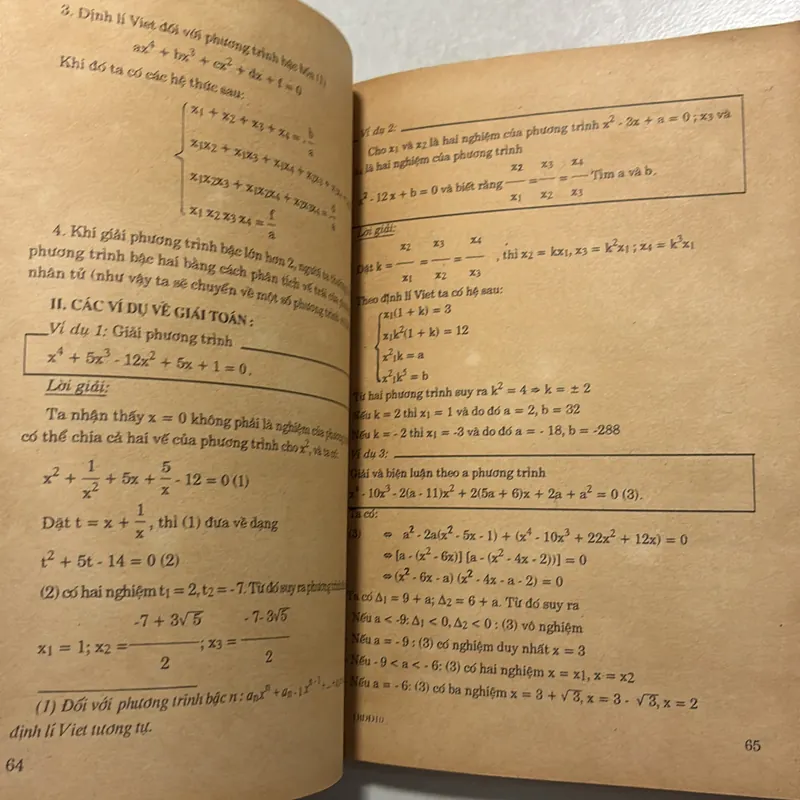 3. Định lí Viet đối với phương trình bậc bốn (1)
ax⁴ + bx³ + cx² + dx + f = 0
Khi đó ta có các hệ thức sau:
x₁ + x₂ + x₃ + x₄ = - b/a
x₁x₂ + x₁x₃ + x₁x₄ +
x₁x₂x₃ + x₁x₂x₄ +
x₁ x₂ x₃ x₄ = f/a
4. Khi giải phương trình bậc lớn hơn 2, người ta
phương trình bậc hai bằng cách phân tích vế trái
nhân tử (như vậy ta sẽ chuyển về một số phương trình
II. CÁC VÍ DỤ VỀ GIẢI TOÁN :
Ví dụ 1: Giải phương trình
x⁴ + 5x³ - 12x² + 5x + 1 = 0.
Lời giải:
Ta nhận thấy x = 0 không phải là nghiệm của phương
có thể chia cả hai vế của phương trình cho x², và ta có:
x² + 1/x² + 5x + 5/x - 12 = 0 (1)
Đặt t = x + 1/x, thì (1) đưa về dạng
t² + 5t - 14 = 0 (2)
(2) có hai nghiệm t₁ = 2, t₂ = - 7. Từ đó suy ra phương trình
x₁ = 1; x₂ = (-7 + 3√5)/2 ; x₃ = (-7- 3√5)/2
(1) Đối với phương trình bậc n : aₙxⁿ + aₙ₋₁xⁿ⁻¹ +
định lí Viet tương tự.
64
Ví dụ 2:
Cho x₁ và x₂ là hai nghiệm của phương trình x² - 3x + a = 0 ; x₃ và
là hai nghiệm của phương trình
x² - 12x + b = 0 và biết rằng x₂/x₁ = x₃/x₂ = x₄/x₃. Tìm a và b.
Lời giải:
Đặt k = x₂/x₁ = x₃/x₂ = x₄/x₃ , thì x₂ = kx₁, x₃ = k²x₁ ; x₄ = k³x₁
Theo định lí Viet ta có hệ sau:
x₁(1 + k) = 3
x₁k²(1 + k) = 12
x²₁k = a
x²₁k⁵ = b
Từ hai phương trình suy ra k² = 4 ⇒ k = ± 2
Nếu k = 2 thì x₁ = 1 và do đó a = 2, b = 32
Nếu k = - 2 thì x₁ = -3 và do đó a = - 18, b = -288
Ví dụ 3:
Giải và biện luận theo a phương trình
x⁴ -10x³ -2(a - 11)x² + 2(5a + 6)x + 2a + a² = 0 (3).
Ta có:
(3) ⇔ a² - 2a(x² - 5x - 1) + (x⁴ - 10x³ + 22x² + 12x) = 0
⇔ [a - (x² - 6x)] [a - (x² - 4x - 2))] = 0
⇔ (x² - 6x - a) (x² - 4x - a - 2) = 0
Ta có Δ₁ = 9 + a; Δ₂ = 6 + a. Từ đó suy ra
Nếu a < -9: Δ₁ < 0, Δ₂ < 0 : (3) vô nghiệm
Nếu a = - 9 : (3) có nghiệm duy nhất x = 3
Nếu - 9 < a < - 6: (3) có hai nghiệm x = x₁, x = x₂
Nếu a = - 6: (3) có ba nghiệm x = 3 + √3, x = 3 - √3, x = 2
65